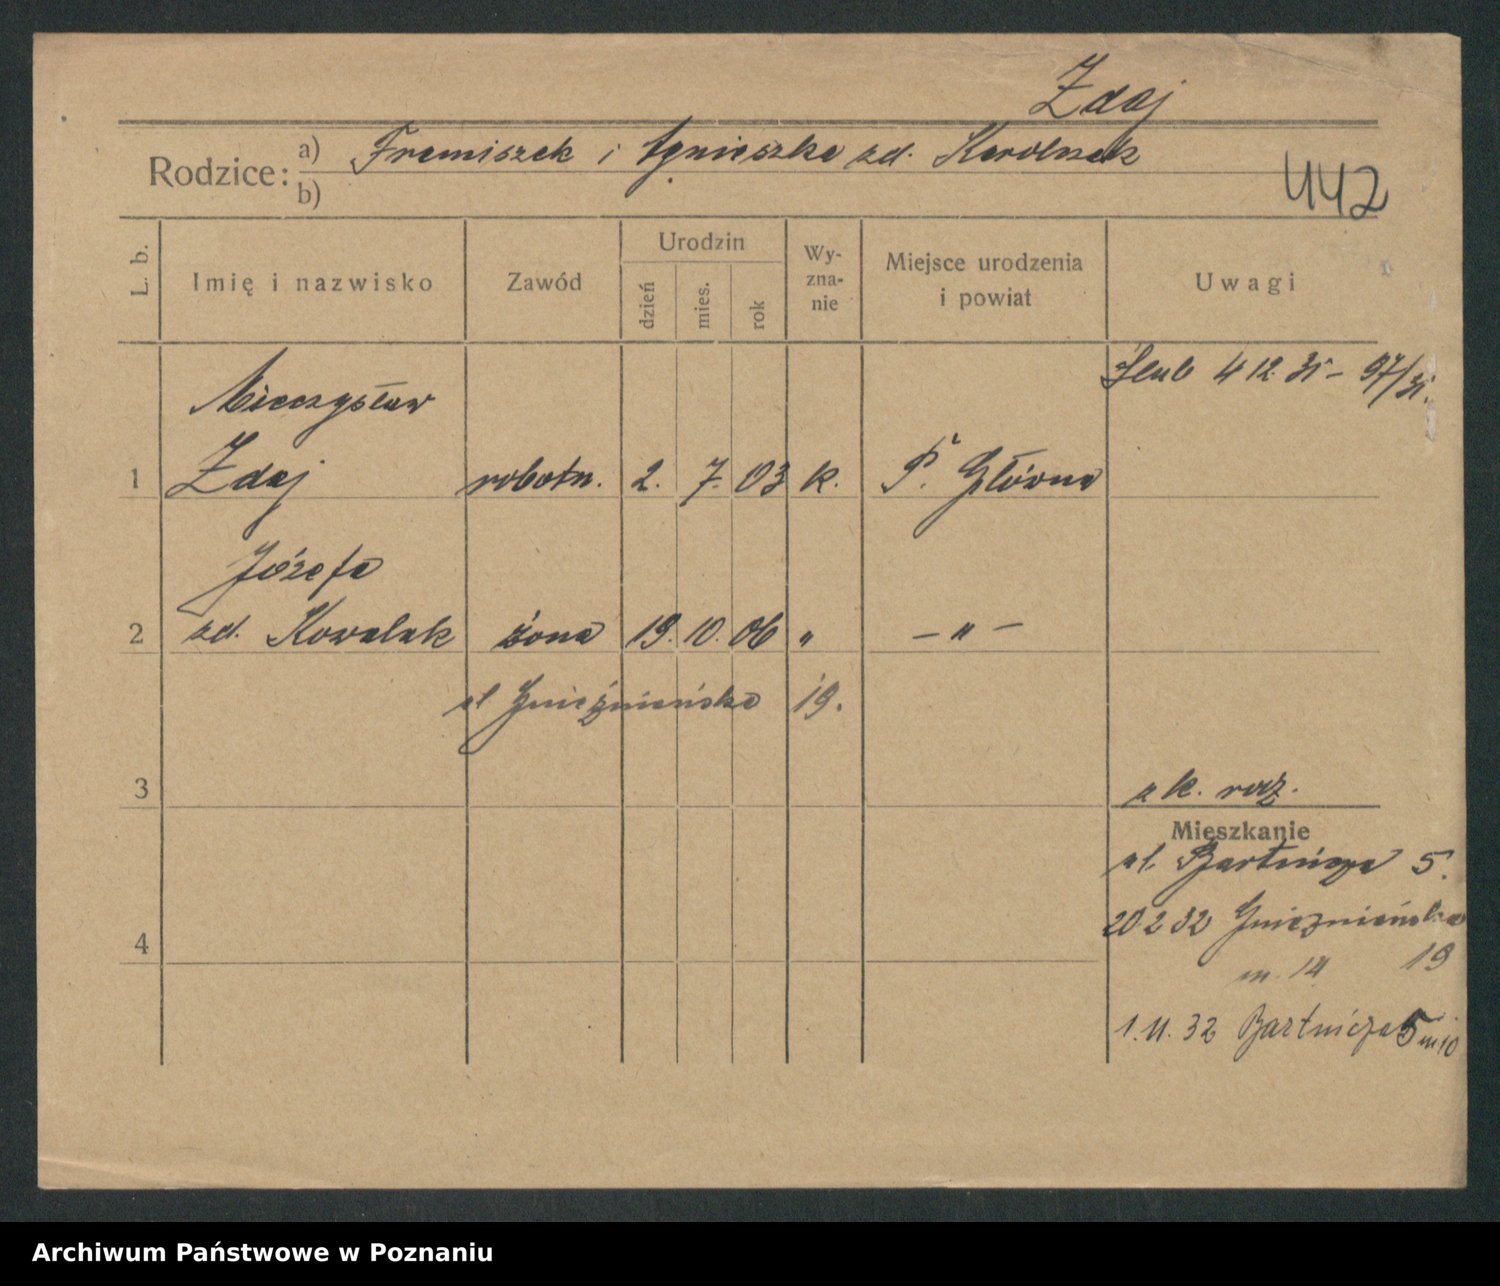 Zdaj
Rodzice: a) Franciszek i Agnieszka zd. Karolczak
b)
442
L. b.
Imię i nazwisko
Zawód
Urodzin
dzień
mies.
rok
Wy-
zna-
nie
Miejsce urodzenia
i powiat
Uwagi
Ślub 4 12. 31 – 97/31.
Mieczysław
1 Zdaj robotn. 2. 7. 03 k. P. Główna
Józefa
2 zd. Kowalak żona 19. 10. 06 " – " –
ul Gnieźnieńska 19.
3
z k. rodz.
Mieszkanie
ul. Bartnicza 5.
20 2 32 Gnieźnieńska
19
m. 14
4
1. 11. 32 Bartnicza 5 m 10
Archiwum Państwowe w Poznaniu